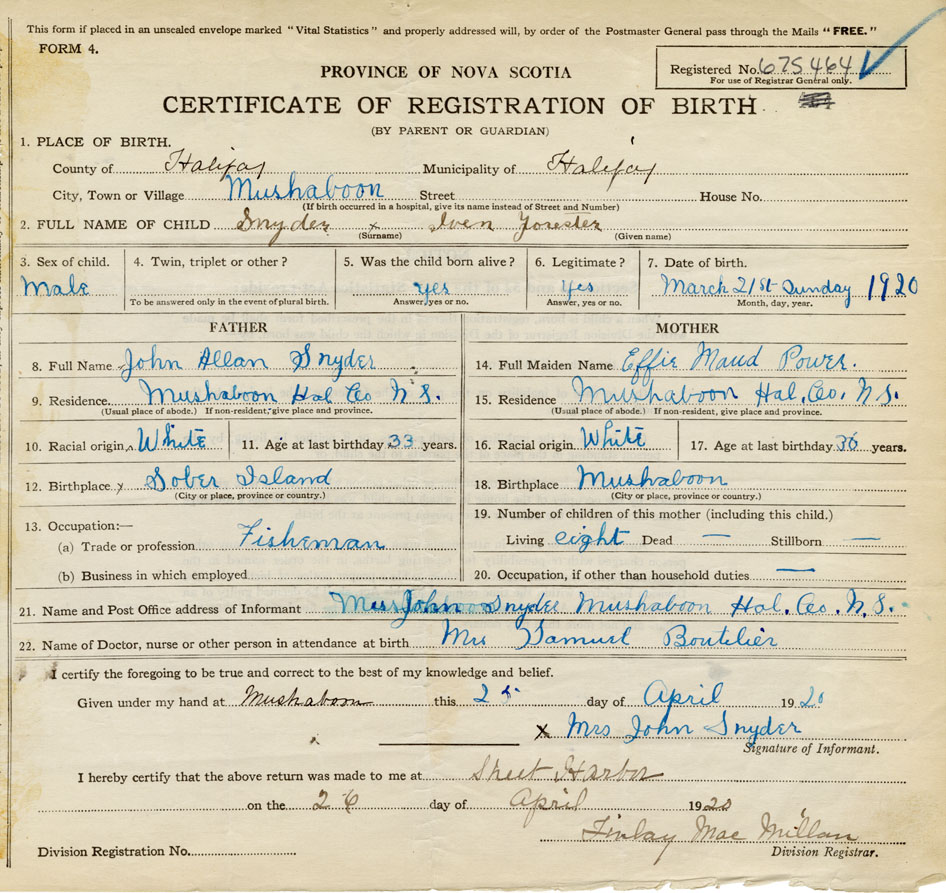 This form if placed in an unsealed envelope marked "Vital Statistics" and properly addressed will, by order of the Postmaster General pass through the Mails "FREE."
FORM 4.
Registered No. 675464
For use of Registrar General only.
PROVINCE OF NOVA SCOTIA
CERTIFICATE OF REGISTRATION OF BIRTH
(BY PARENT OR GUARDIAN)
1. PLACE OF BIRTH.
County of Halifax Municipality of Halifax
City, Town or Village Mushaboon Street House No.
(If birth occurred in a hospital, give its name instead of Street and Number)
2. FULL NAME OF CHILD Snyder x Iven Forester
(Surname) (Given name)
3. Sex of child. 4. Twin, triplet or other? 5. Was the child born alive? 6. Legitimate? 7. Date of birth.
Male yes Yes March 21st Sunday 1920
To be answered only in the event of plural birth. Answer, yes or no. Answer, yes or no. Month, day, year.
FATHER MOTHER
8. Full Name John Allan Snyder 14. Full Maiden Name Effie Maud Power.
9. Residence Mushaboon Hal Co N.S. 15. Residence Mushaboon Hal. Co. N.S.
(Usual place of abode.) If non-resident, give place and province. (Usual place of abode.) If non-resident, give place and province.
10. Racial origin White 11. Age at last birthday 33 years. 16. Racial origin White 17. Age at last birthday 36 years.
12. Birthplace Sober Island 18. Birthplace Mushaboon
(City or place, province or country.) (City or place, province or country.)
13. Occupation:— 19. Number of children of this mother (including this child.)
(a) Trade or profession Fisheman Living eight Dead — Stillborn —
(b) Business in which employed 20. Occupation, if other than household duties —
21. Name and Post Office address of Informant Mrs John Snyder Mushaboon Hal. Co. N.S.
22. Name of Doctor, nurse or other person in attendance at birth Mrs Samuel Boutilier
I certify the foregoing to be true and correct to the best of my knowledge and belief.
Given under my hand at Mushaboon this 25 day of April 1920
x Mrs John Snyder
Signature of Informant.
I hereby certify that the above return was made to me at Sheet Harbor
on the 26 day of April 1920
Finlay Mac Millan
Division Registration No. Division Registrar.